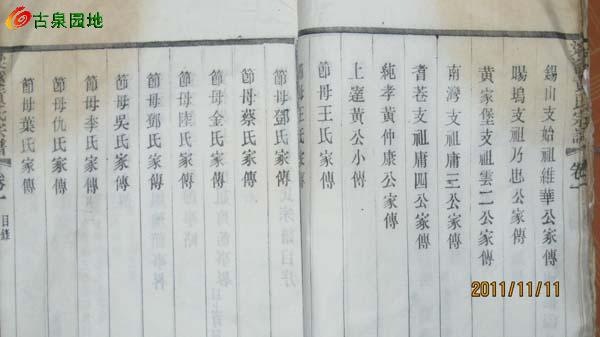 古泉园地
黃氏宗譜 卷一
錫山支始祖維華公家傳
暘塢支祖乃也公家傳
黄家堡支祖雲二公家傳
南灣支祖庸三公家傳
耆巷支祖庸四公家傳
純孝黄仲康公家傳
上達黄公小傳
節母王氏家傳
氏家傳
節母鄧氏家傳
節母蔡氏家傳
節母金氏家傳
節母陸氏家傳
節母鄧氏家傳
節母吳氏家傳
節母李氏家傳
節母仇氏家傳
節母葉氏家傳
氏宗譜 卷一 目錄
2011/11/11